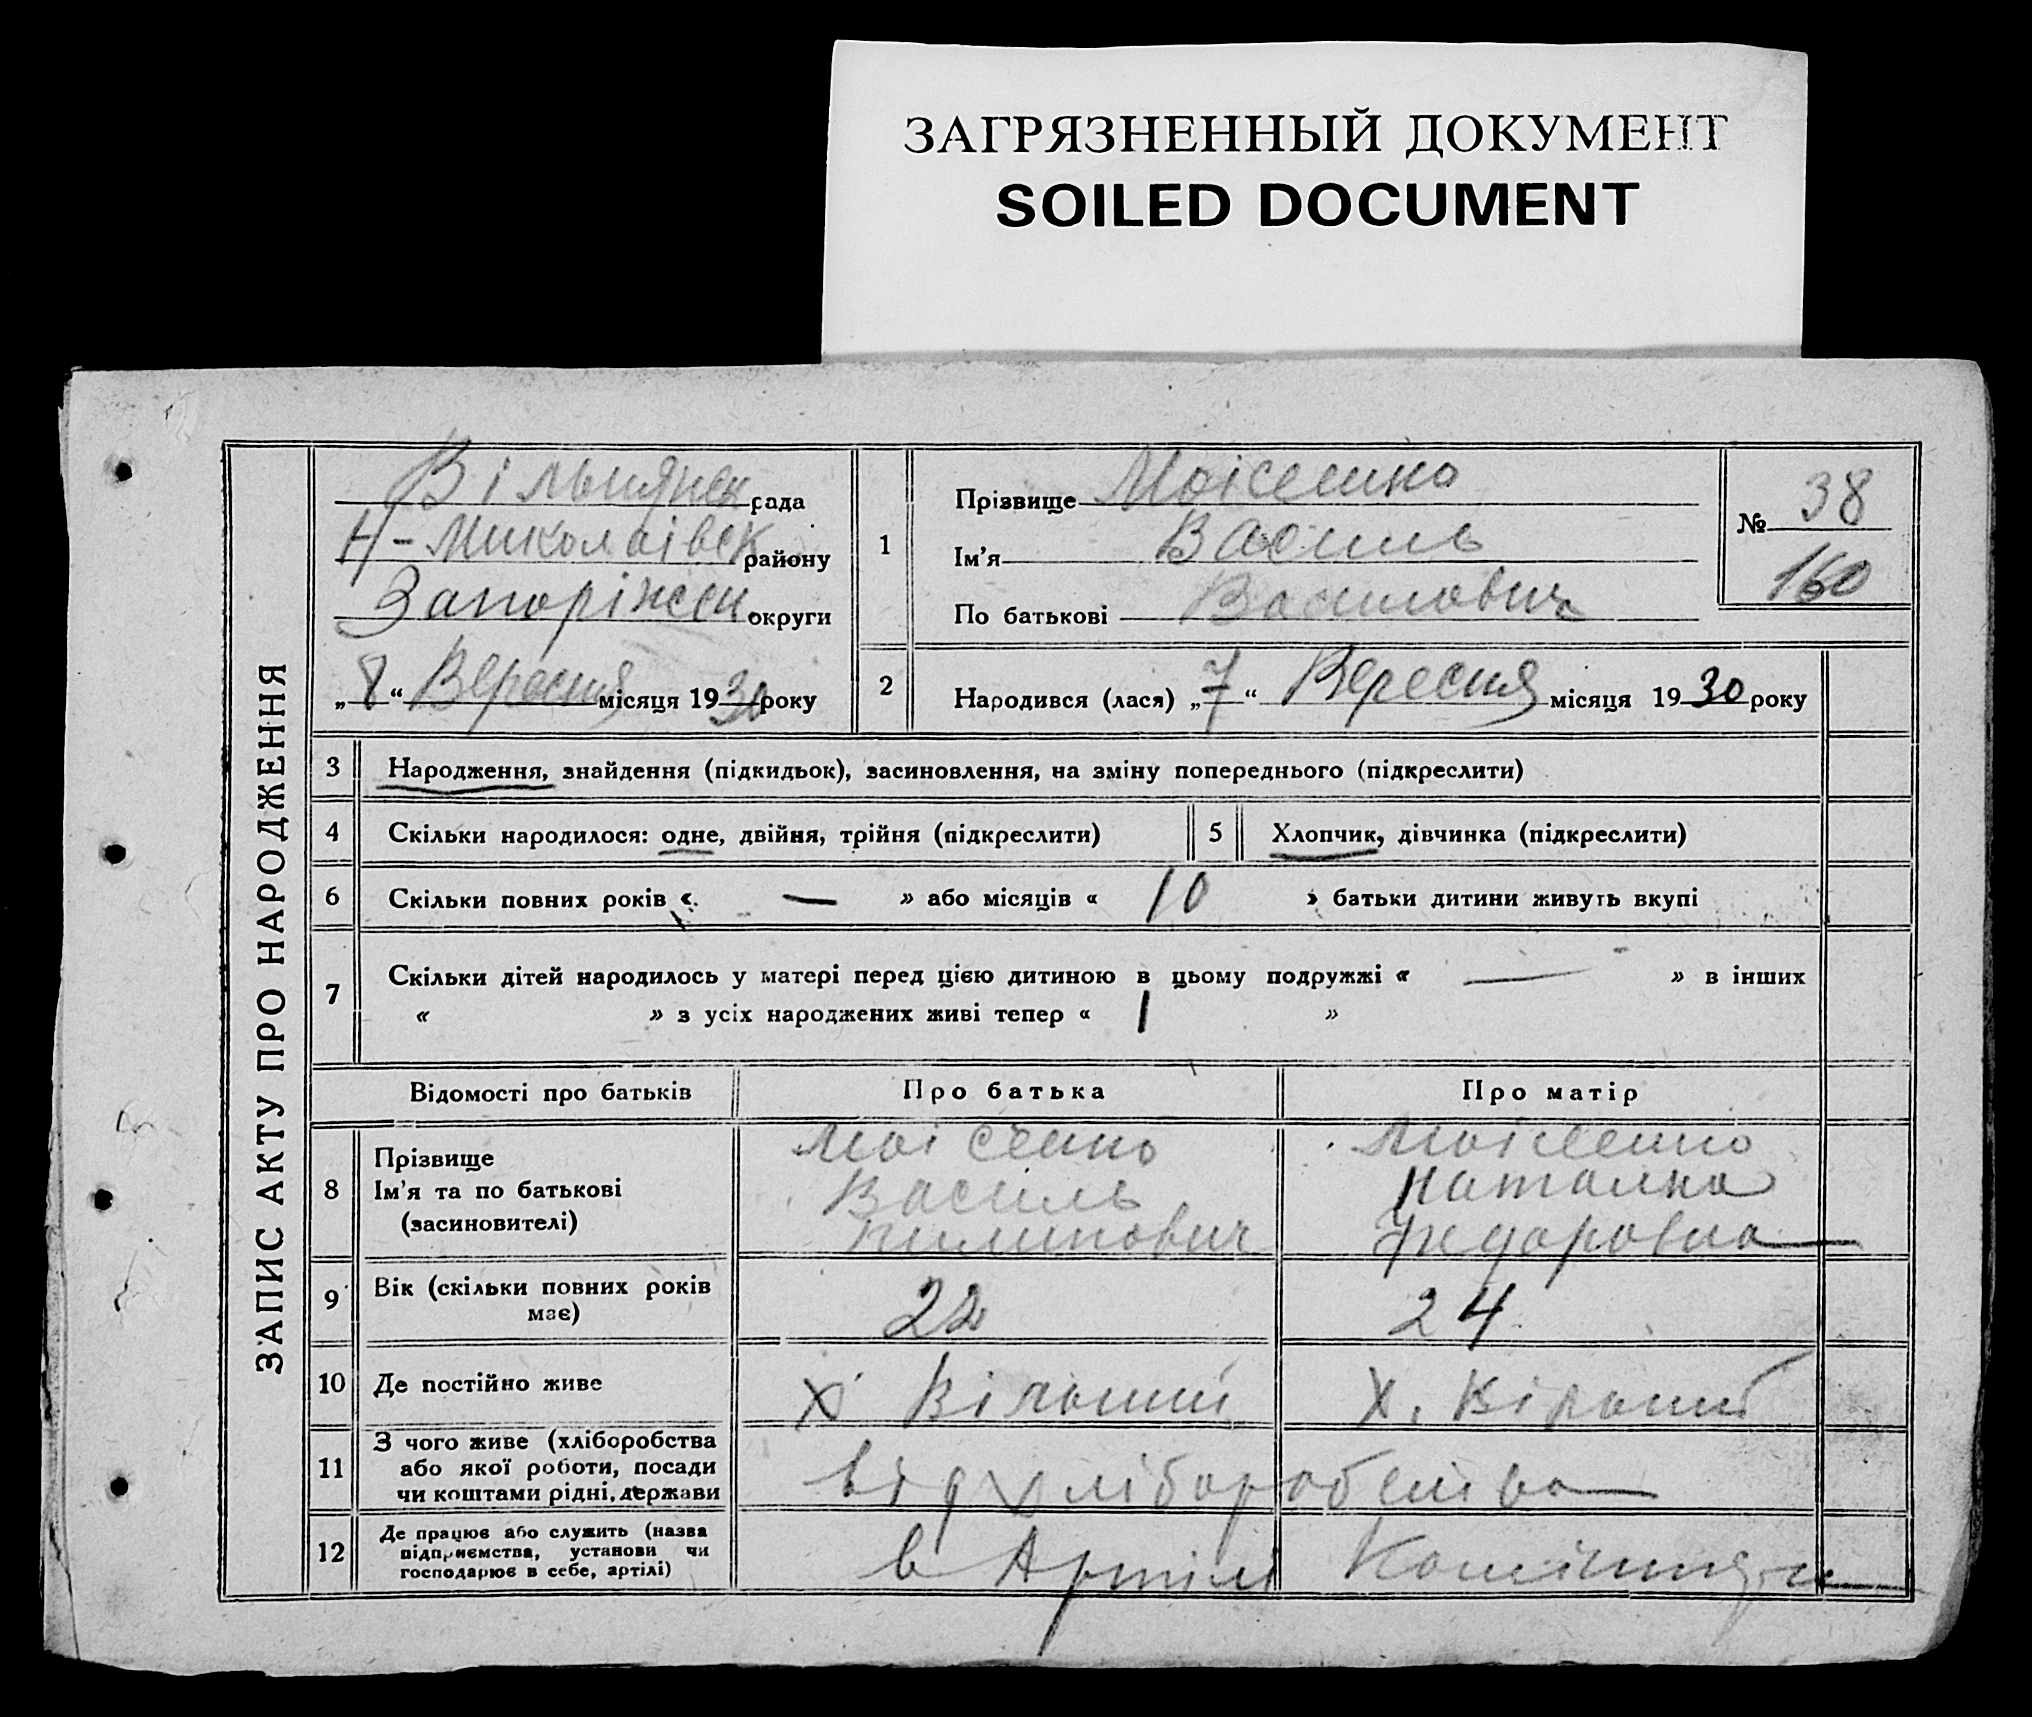 ЗАГРЯЗНЕННЫЙ ДОКУМЕНТ
SOILED DOCUMENT
ЗАПИС АКТУ ПРО НАРОДЖЕННЯ
Вільнянск рада
Н-Миколаівск району
Запоріжск округи
„8“ Вересня місяця 1930 року
1
Прізвище Моісеенко
Ім'я Василь
По батькові Василович
№ 38
160
2 Народився (лася) „7“ Вересня місяця 1930 року
3 Народження, знайдення (підкидьок), засиновлення, на зміну попереднього (підкреслити)
4 Скільки народилося: одне, двійня, трійня (підкреслити) 5 Хлопчик, дівчинка (підкреслити)
6 Скільки повних років « — » або місяців « 10 » батьки дитини живуть вкупі
7 Скільки дітей народилось у матері перед цією дитиною в цьому подружжі « — » в інших
« » з усіх народжених живі тепер « 1 »
Відомості про батьків Про батька Про матір
8 Прізвище Моісеенко Моісеенко
Ім'я та по батькові Василь Наталка
(засиновителі) Пилипович Федоровна
9 Вік (скільки повних років має) 22 24
10 Де постійно живе Х Вільний Х. Вільний
11 З чого живе (хліборобства
або якої роботи, посади
чи коштами рідні, держави
від хліборобства
12 Де працює або служить (назва
підприємства, установи чи
господарює в себе, артілі)
в Артілі